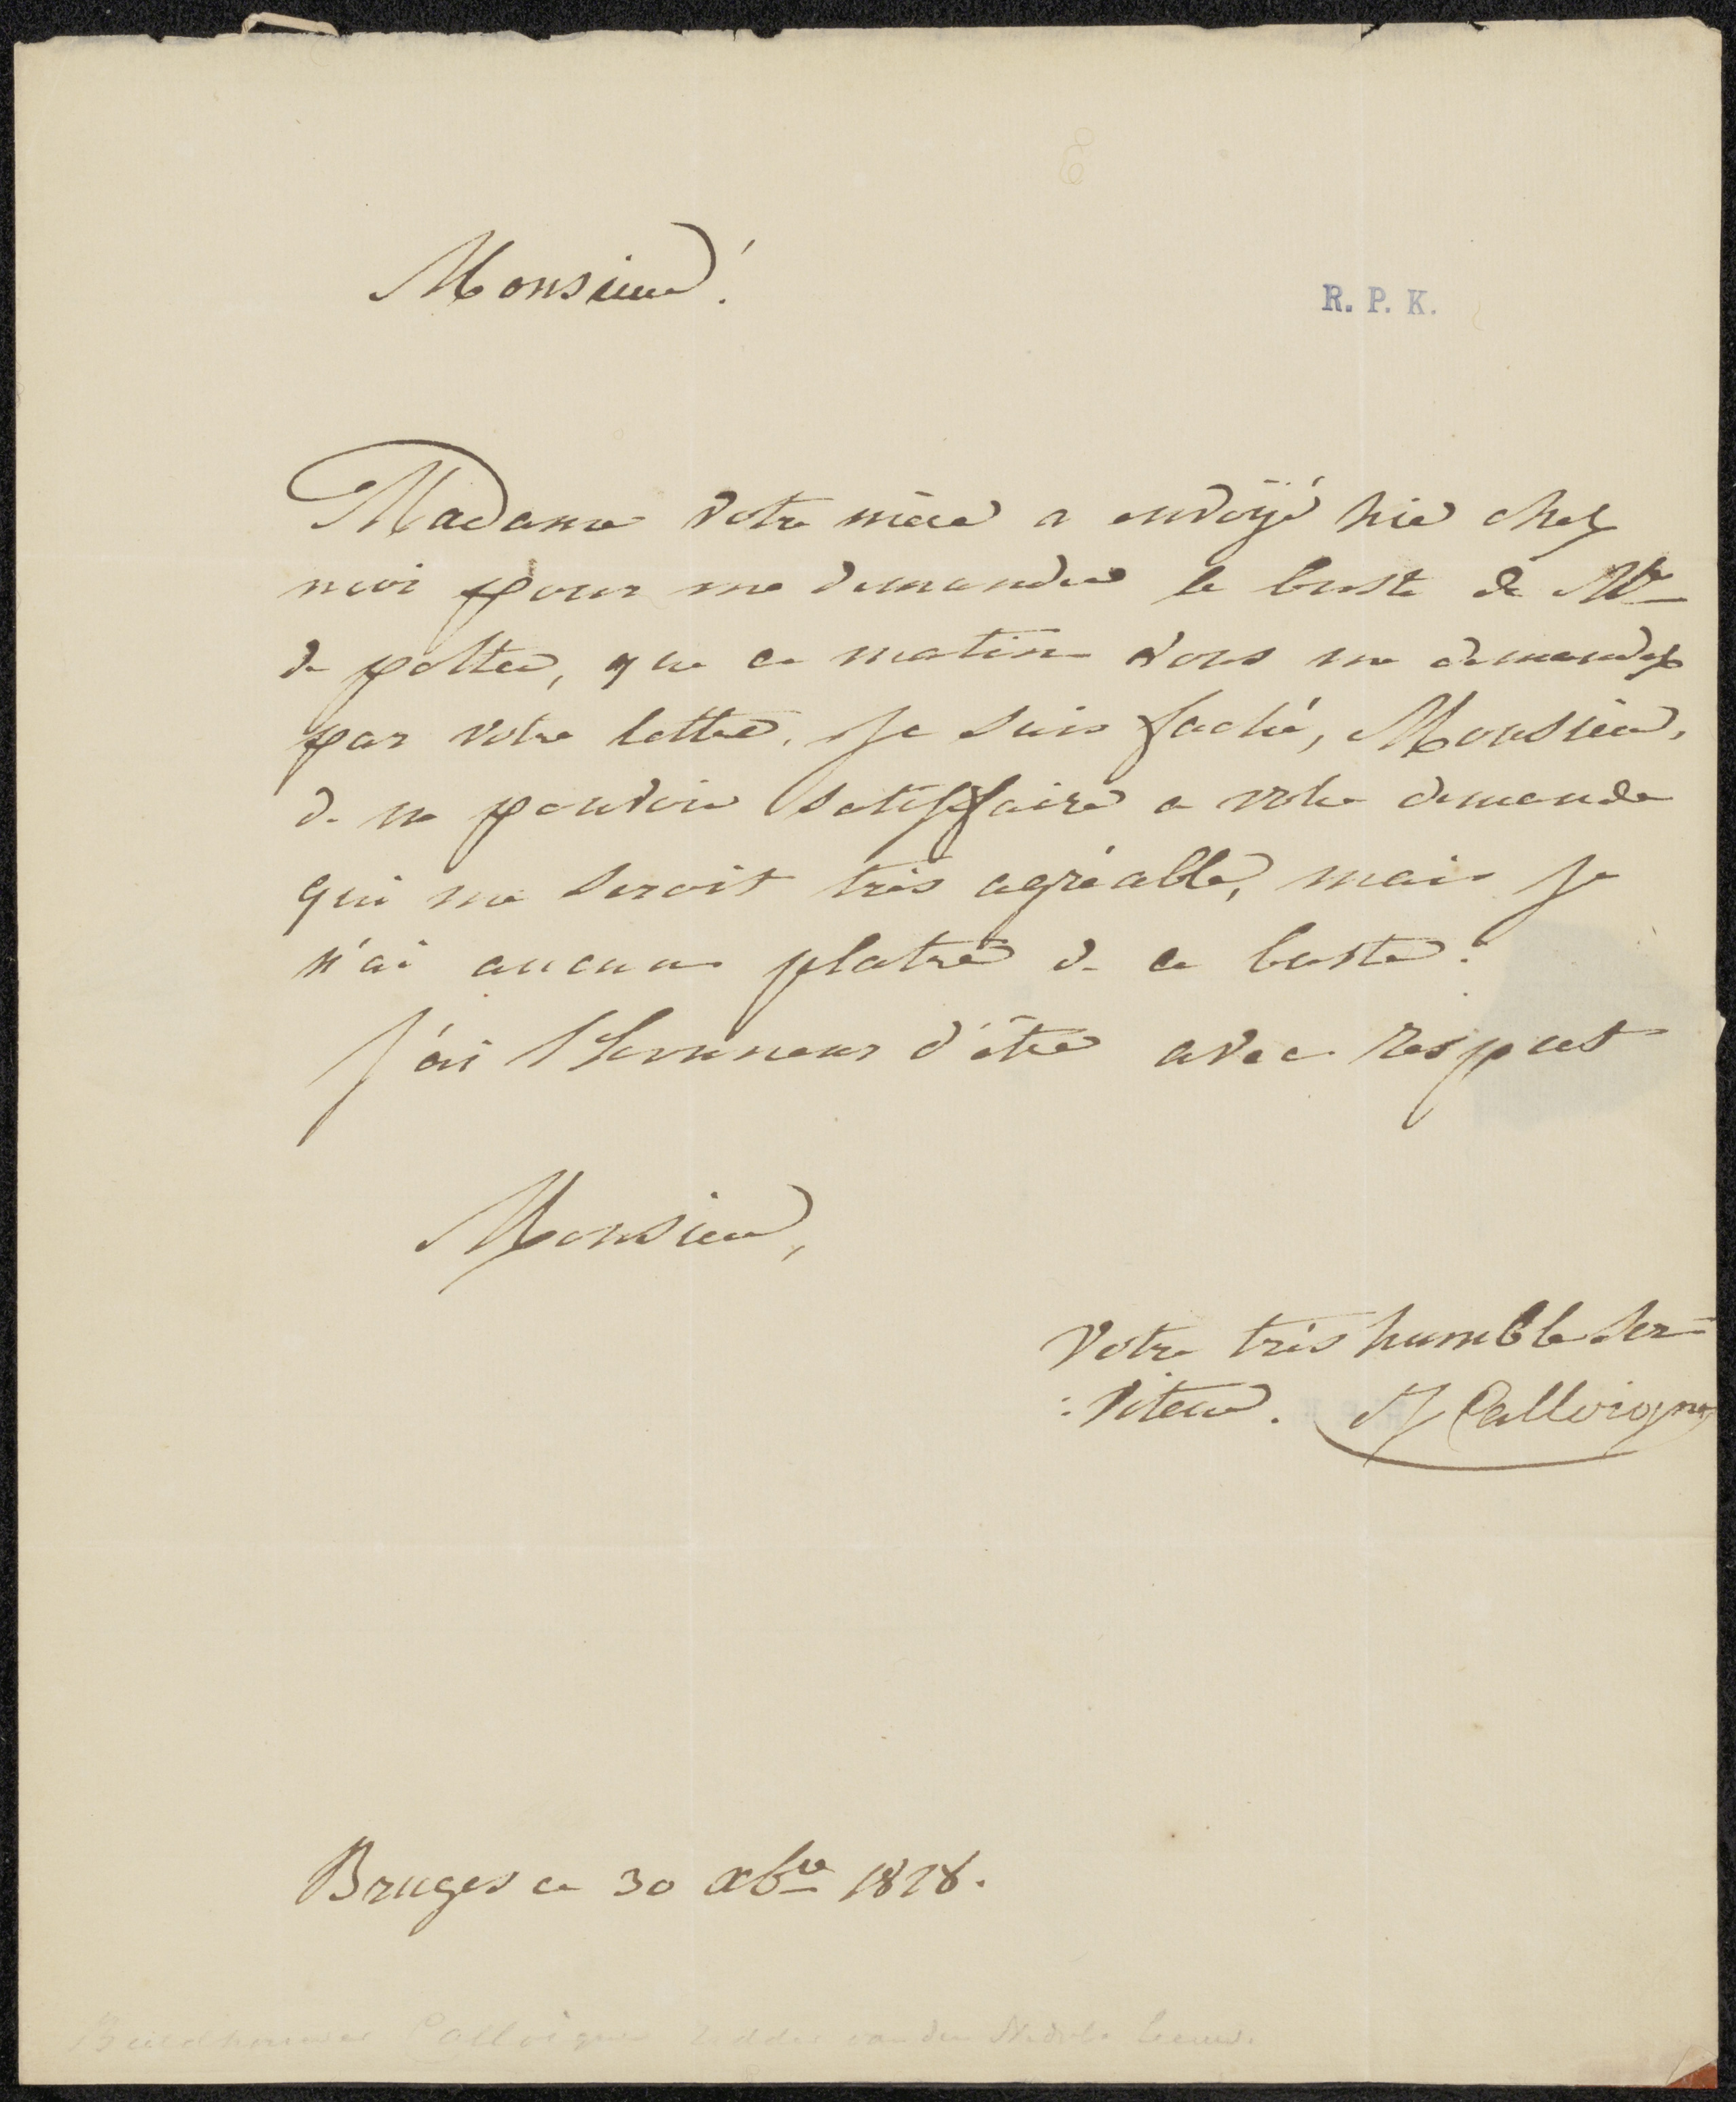 Monsieur!
R. P. K.
Madame votre mère a envoÿé hier chez
moi pour me demander le buste de Mr
de potter, que ce matin vous me demandez
par votre lettre. Je suis faché, Monsieur,
de ne pouvoir satisffaire a votre demande
qui me seroit très agréable, mais je
n'ai aucun platre de ce buste.
J'ai l'honneur d'être avec respect
Monsieur,
Votre très humble Ser=
:viteur. JJ Calloigne
Bruges ce 30 Xbre 1828.
Beeldhouwer Calloigne Ridder van den Nederl. Leeuw.